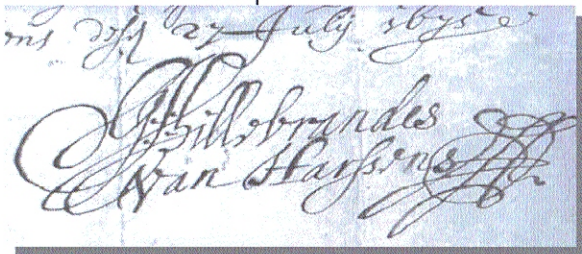 27 July 1675
Hillebrandes
Van Harssens